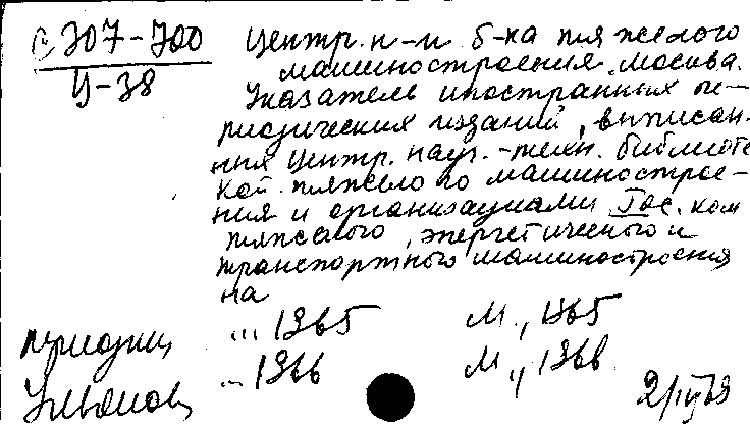 С 307-700
Ц-38
Центр. н-т б-ка тяжелого
машиностроения. Москва.
Указатель иностранных пе-
риодических изданий, выписан-
ных Центр. науч.-техн. библиоте
кой тяжелого машинострое-
ния и организациями Гос. ком
тяжелого, энергетического и
транспортного машиностроения
на
... 1965 М., 1965
... 1966 М., 1966